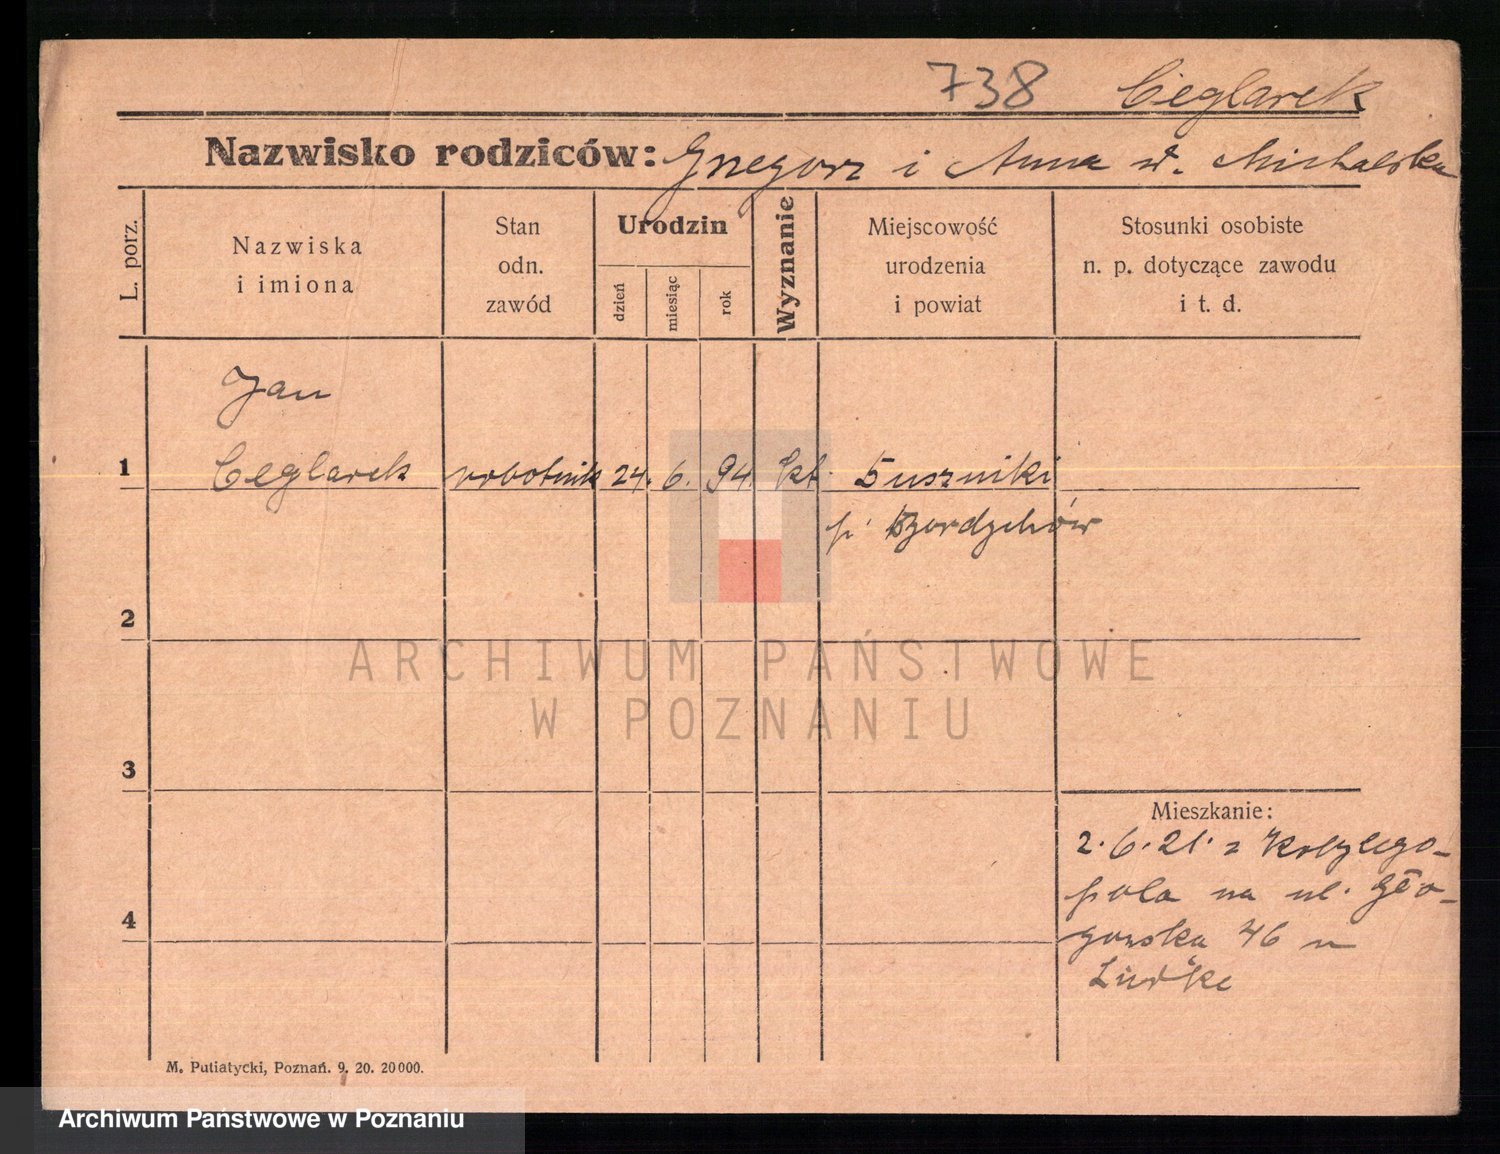 738 Ceglarek
Nazwisko rodziców: Grzegorz i Anna d. Michalska
L. porz.
Nazwiska
i imiona
Stan
odn.
zawód
Urodzin
dzień
miesiąc
rok
Wyznanie
Miejscowość
urodzenia
i powiat
Stosunki osobiste
n. p. dotyczące zawodu
i t. d.
Jan
1 Ceglarek robotnik 24. 6. 94 kt. Suszniki
p.
2
ARCHIWUM PAŃSTWOWE
W POZNANIU
3
Mieszkanie:
2.6.21. z Kobylego-
pola na ul. Gło-
4
gowska 46 u
M. Putiatycki, Poznań. 9. 20. 20000.
Archiwum Państwowe w Poznaniu